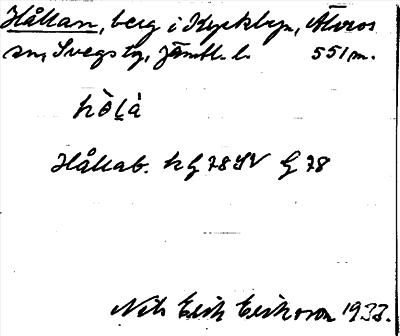 Hållan, berg i Kyrkbyn, Älvros
sn, Svegs tg, Jämtl. l. 551 m.
hò̭là
Hållab. kg 78 SV G 78
Nils Erik Eriksson 1933.